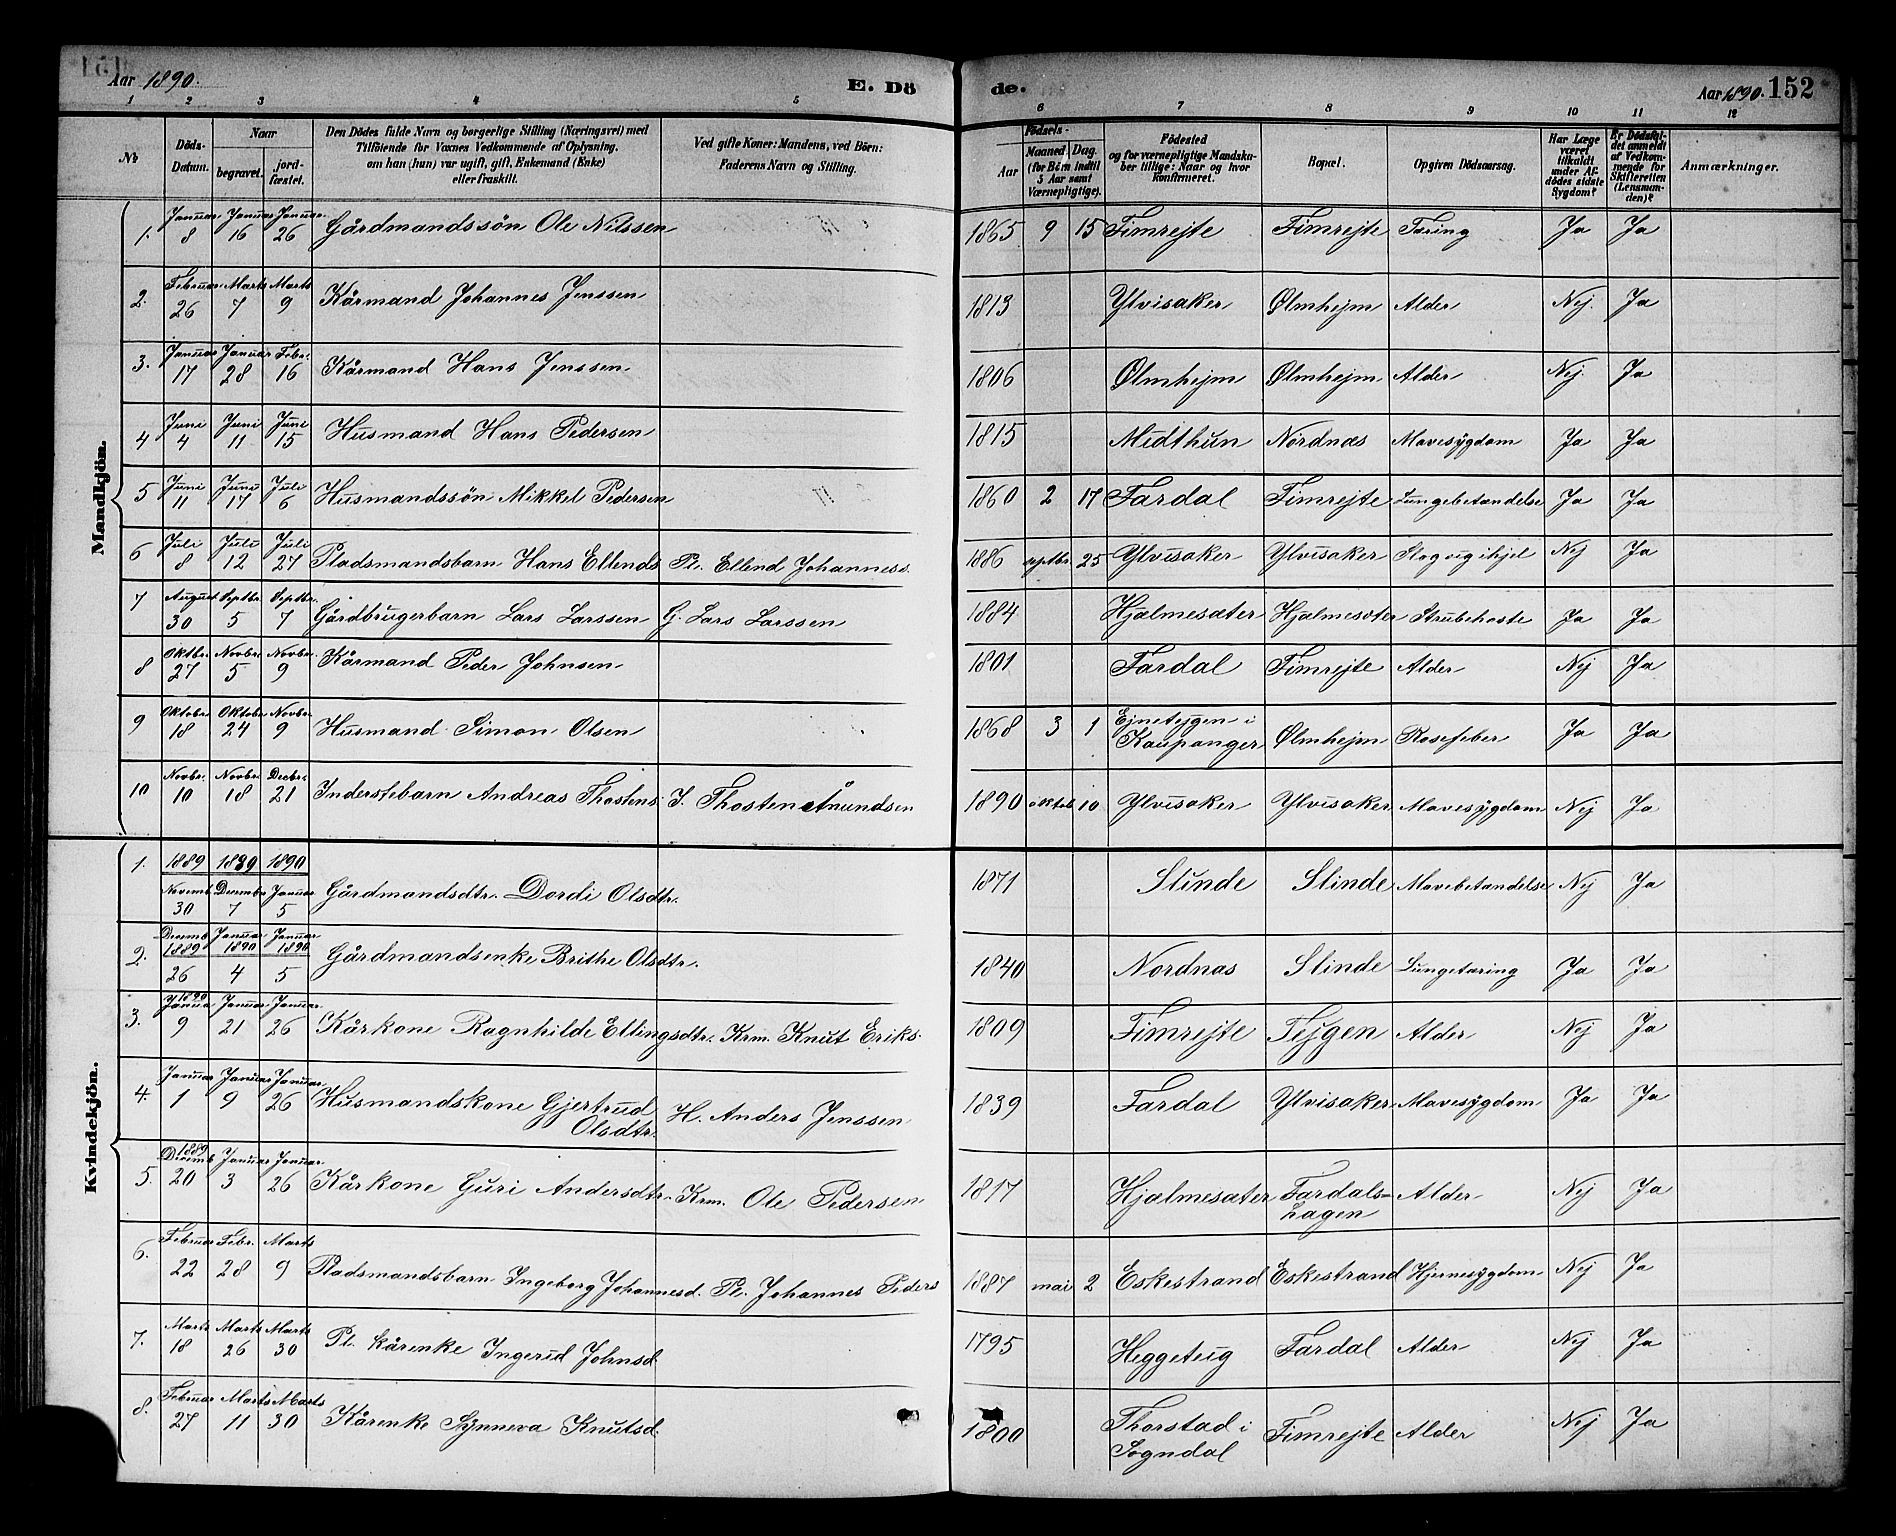 Aar 1890. E. Dö de. Aar 1890. 152
1 2 3 4 5 6 7 8 9 10 11 12
No Döds-Datum. Naar begravet. jordfæstet. Den Dödes fulde Navn og borgerlige Stilling (Næringsvei) med Tilföiende for Voxnes Vedkommende af Oplysning, om han (hun) var ugift, gift, Enkemand (Enke) eller fraskilt. Ved gifte Koner: Mandens, ved Börn: Faderens Navn og Stilling. Födsels- Aar Maaned. Dag. (for Börn indtil 5 Aar samt Værnepligtige). Födested og for værnepligtige Mandskaber tillige: Naar og hvor konfirmeret. Bopæl. Opgiven Dödsaarsag. Har Læge været tilkaldt under Afdödes sidste Sygdom? Er Dödsfaldet anmeldt af Vedkommende for Skifteretten (Lensmanden)? Anmærkninger.
Mandkjön.
1. Januar 8 Januar 16 Januar 26 Gårdmandssön Ole Nilssen 1865 9 15 Fimrejte Fimrejte Tæring Ja Ja
2. Februar 26 Marts 7 Marts 9 Kårmand Johannes Jenssen 1813 Ylvisaker Ølmhejm Alder Nej. Ja
3. Januar 17 Januar 28 Febr. 16 Kårmand Hans Jenssen 1806 Ølmhejm Ølmhejm Alder Nej. Ja
4 Juni 4 Juni 11 Juni 15 Husmand Hans Pedersen 1815 Midthun Nordnæs Mavesygdom Ja Ja
5 Juni 11 Juni 17 Juli 6 Husmandssön Mikkel Pedersen 1860 2 17 Fardal Fimrejte Lungebetændelse Ja Ja
6 Juli 8 Juli 12 Juli 27 Pladsmandsbarn Hans Ellends Pl. Ellend Johanness. 1886 septbr. 25 Ylvisaker Ylvisaker Slog sig ihjel Nej Ja
7 August 30 Septbr. 5 Septbr. 7 Gårdbrugerbarn Lars Larssen G. Lars Larssen 1884 Hjælmesæter Hjælmesæter Strubehoste Ja Ja
8 Oktbr. 27 Novbr. 5 Novbr. 9 Kårmand Peder Johnsen 1801 Fardal Fimrejte Alder Nej Ja
9 Oktobr. 18 Oktobr. 24 Novbr. 9 Husmand Simon Olsen 1868 3 1 Ejnetejgen i Kaupanger Ølmhejm Rosefeber Ja Ja
10 Novbr. 10 Novbr. 18 Decbr. 21 Inderstebarn Andreas Thostens. I. Thosten Åmundsen 1890 oktob. 10 Ylvisaker Ylvisaker Mavesygdom Nej Ja
Kvindekjön.
1. 1889 Novemb. 30 1889 Decembr. 7 1890 Januar 5 Gårdmandsdtr. Dordi Olsdtr. 1871 Slinde Slinde Mavebetændelse Nej Ja
2. Decemb. 1889 26 Januar 1890 4 Januar 1890 5 Gårdmandsenke Brithe Olsdtr. 1840 Nordnæs Slinde Lungetæring Ja Ja
3. 1890 Januar 9 Januar 21 Januar 26 Kårkone Ragnhilde Ellingsdtr. Krm. Knut Eriks. 1809 Fimrejte Tejgen Alder Nej Ja
4. Januar 1 Januar 9 Januar 26 Husmandskone Gjertrud Olsdtr. H. Anders Jenssen 1839 Fardal Ylvisaker Mavesygdom Ja Ja
5. 1889 Decemb. 20 Januar 3 Januar 26 Kårkone Guri Andersdtr. Krm. Ole Pedersen 1817 Hjælmesæter Fardals-hagen Alder Nej Ja
6. Februar 22 Febr. 28 Marts 9 Pladsmandsbarn Ingeborg Johannesd. Pl. Johannes Peders 1887 mai 2 Eskestrand Eskestrand Hjernesygdom Nej Ja
7. Marts 18 Marts 26 Marts 30 Pl. kårenke Ingerid Johnsd. 1795 Heggeteig Fardal Alder Nej Ja
8. Februar 27 Marts 11 Marts 30 Kårenke Synneva Knutsd. 1800 Thorstad i Sogndal Fimrejte Alder Nej Ja